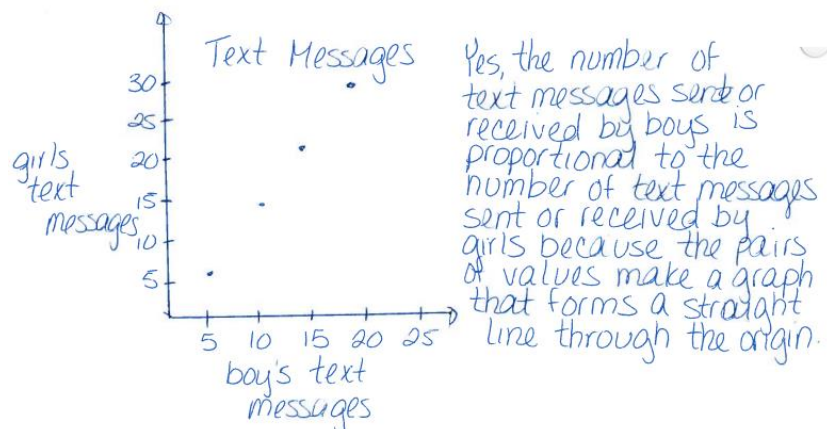 Text Messages
30
25
20
15
10
5
girls
text
messages
5 10 15 20 25
boy's text
messages
Yes, the number of
text messages sent or
received by boys is
proportional to the
number of text messages
sent or received by
girls because the pairs
of values make a graph
that forms a straight
line through the origin.